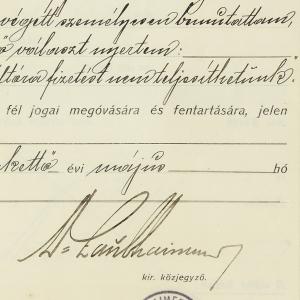 végett személyesen bemutattam,
választ nyertem:
fizetést nem teljesíthetünk"
fél jogai megóvására és fentartására, jelen
kettő évi május hó
Dr
kir. közjegyző.